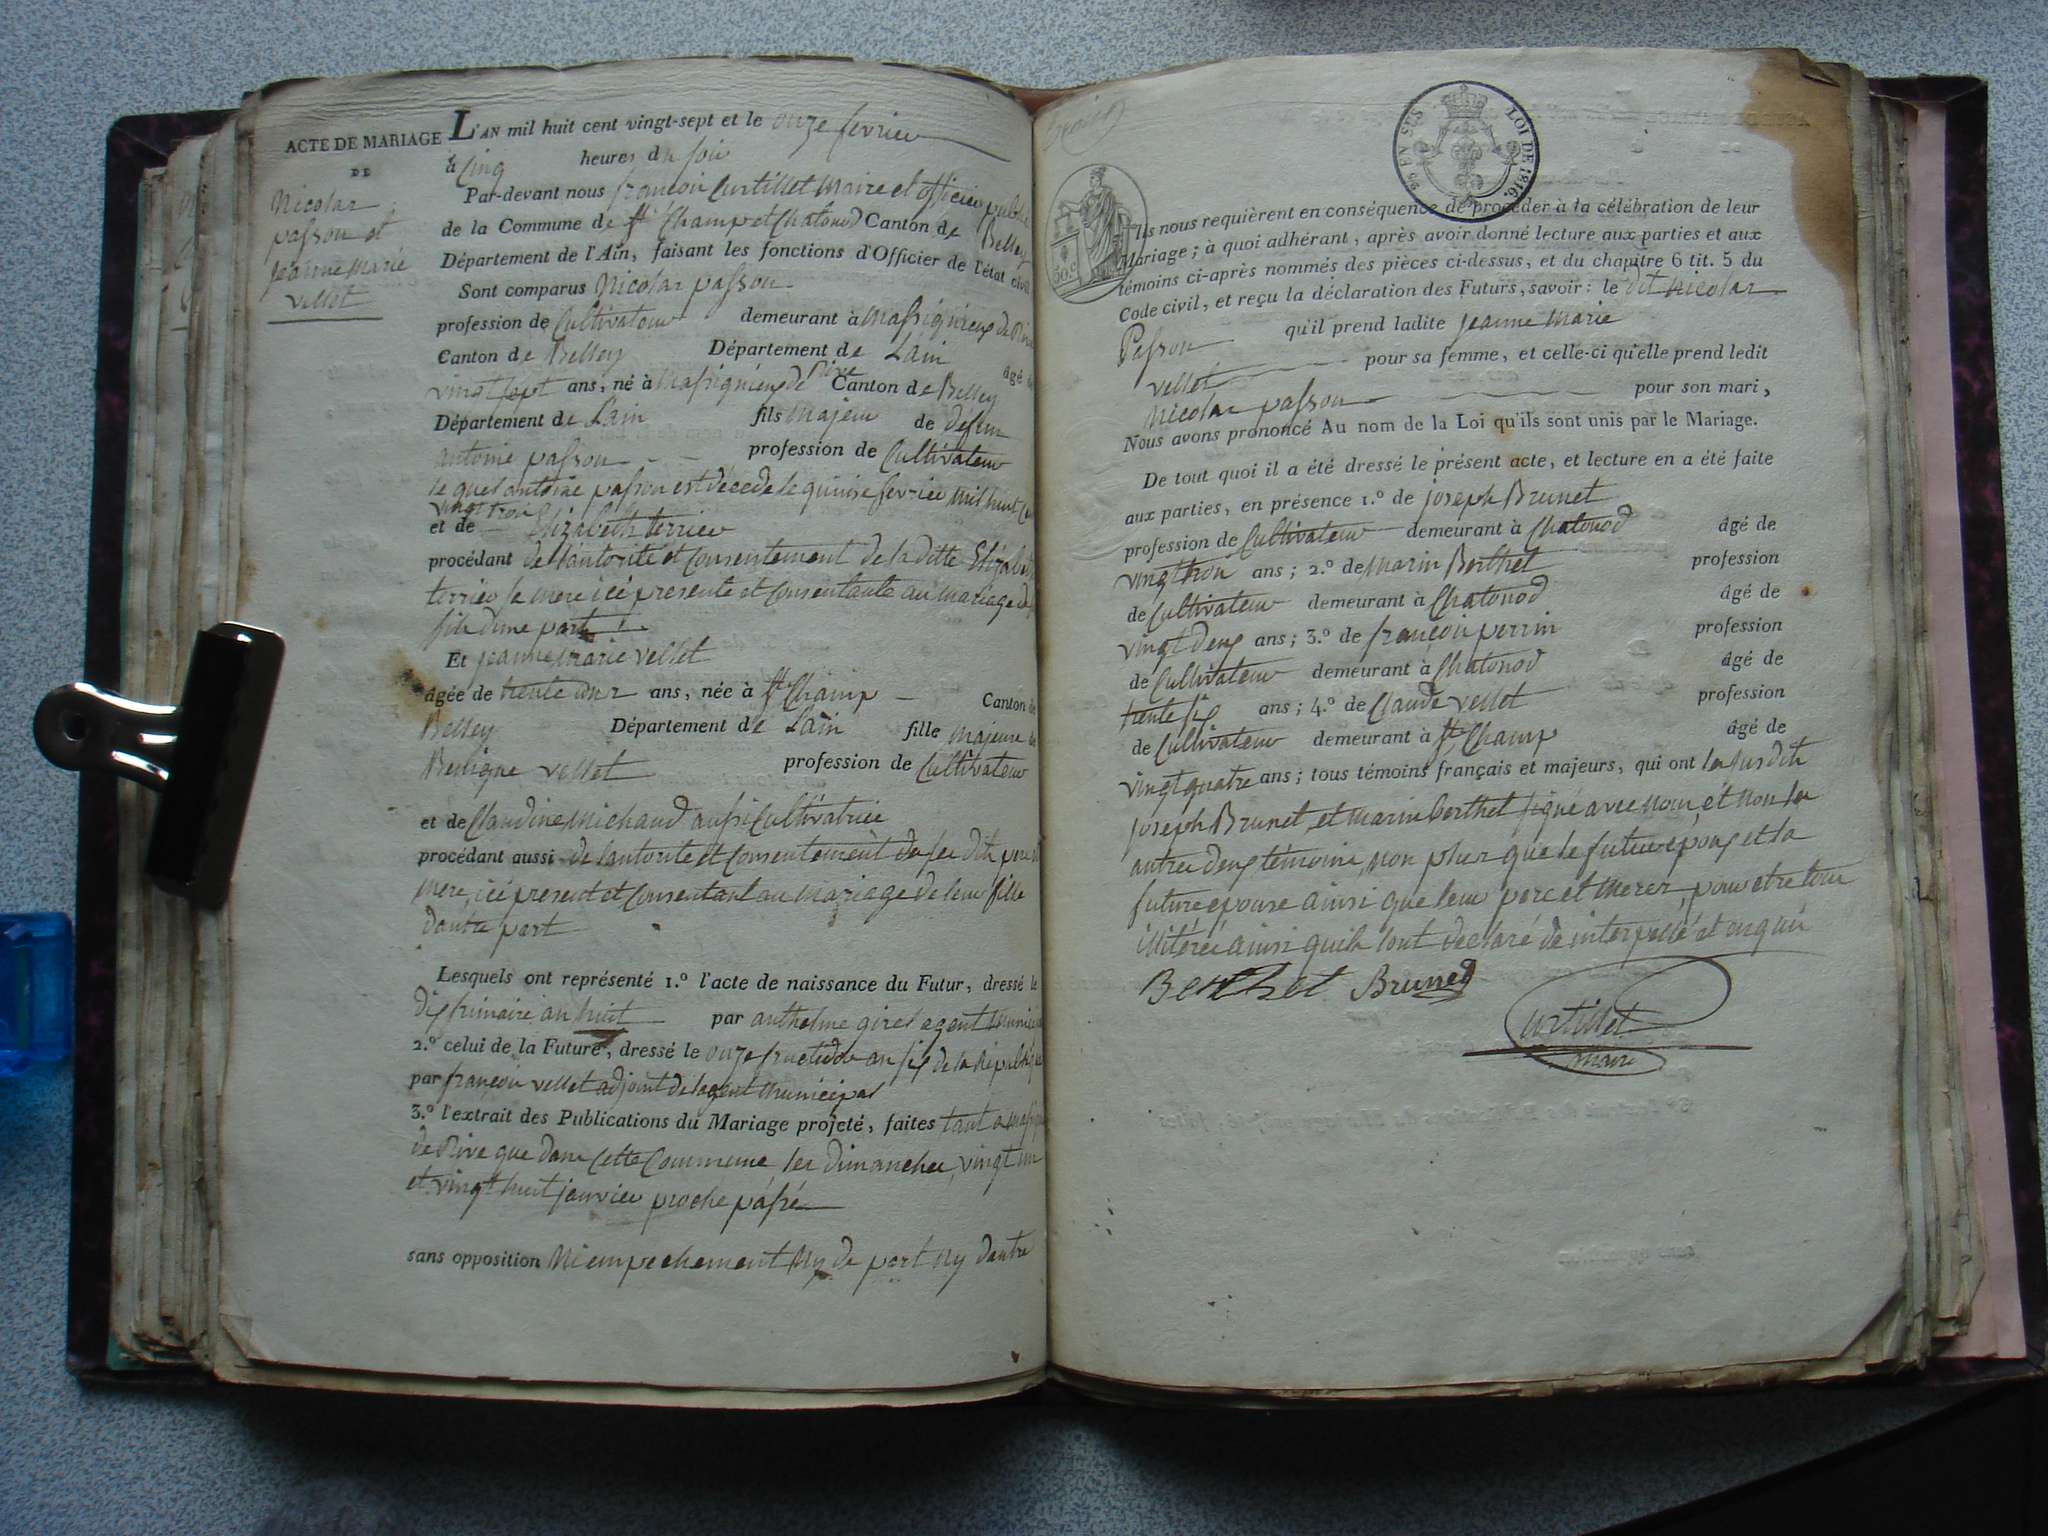 ACTE DE MARIAGE
DE
Nicolas
passon et
jeanne Marie
vellet
L'AN mil huit cent vingt-sept et le onze fevrier
à Cinq heures du soir
Par-devant nous françois Curtillet Maire et officier public
de la Commune de St Champ et Chatonod Canton de Belley
Département de l'Ain, faisant les fonctions d'Officier de l'état civil
Sont comparus Nicolas passon
profession de Cultivateur demeurant à Massignieux de Rive
Canton de Belley Département de Lain âgé de
vingt sept ans, né à Massignieux de Rive Canton de Belley
Département de Lain fils Majeur de defun
antoine passon profession de Cultivateur
le quel antoine passon est décédé le quinze fevrier mil huit Ce
vingt trois
et de Elizabeth terrier
procédant de lautorité et Consentement de la ditte Elizabeth
terrier sa mere ici presente et Consentante au mariage de
fils dune part
Et jeanne Marie vellet
âgée de trente un ans, née à St Champ Canton de
Belley Département de Lain fille majeure de
Benigne vellet profession de Cultivateur
et de Claudine Michaud aussi Cultivatrice
procédant aussi de lautorite et Consentement de ses dits pere et
Mere, ici present et Consentant au Mariage de leur fille
dautre part
Lesquels ont représenté 1.º l'acte de naissance du Futur, dressé le
dix frimaire an huit par anthelme girel agent Munici
2.º celui de la Future, dressé le onze fructidor an six de la République
par françois vellet adjoint de lagent Municipal
3.º l'extrait des Publications du Mariage projeté, faites tant a Massig
de Rive que dans Cette Commune les dimanches, vingt un
et vingt huit janvier proche passé
sans opposition Ni empechement Ny de part Ny dautre
50 c
LOI DE 1816.
Ils nous requièrent en conséquence de procéder à la célébration de leur
Mariage; à quoi adhérant, après avoir donné lecture aux parties et aux
témoins ci-après nommés des pièces ci-dessus, et du chapitre 6 tit. 5 du
Code civil, et reçu la déclaration des Futurs, savoir: le dit Nicolas
Passon qu'il prend ladite Jeanne Marie
vellet pour sa femme, et celle-ci qu'elle prend ledit
Nicolas passon pour son mari,
Nous avons prononcé Au nom de la Loi qu'ils sont unis par le Mariage.
De tout quoi il a été dressé le présent acte, et lecture en a été faite
aux parties, en présence 1.º de joseph Brunet
profession de Cultivateur demeurant à Chatonod âgé de
vingt trois ans; 2.º de Marin Berthet profession
de Cultivateur demeurant à Chatonod âgé de
vingt deux ans; 3.º de françois perrin profession
de Cultivateur demeurant à Chatonod âgé de
trente six ans; 4.º de Claude vellet profession
de Cultivateur demeurant à St Champ âgé de
vingt quatre ans; tous témoins français et majeurs, qui ont les susdits
joseph Brunet et Marin berthet signé avec nous, et Non les
autres deux témoins, non plus que le futur époux et la
future epouse ainsi que leur pere et Meres, pour etre tous
illitérés ainsi quils lont declaré de interpellé et requis
Berthet Brunet
Curtillet
Maire